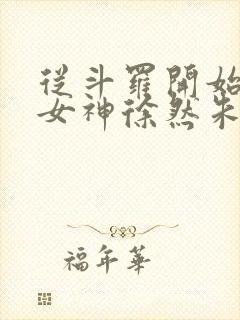 從斗羅開始
女神徐然朱
福年華